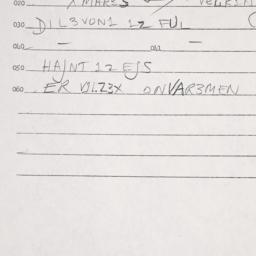 020 X MARES
030 DIL3VON1 12 FUL
040 — 041 —
050 HAJNT 12 EJS
060 ER VJLZ3X ONVAR3MEN